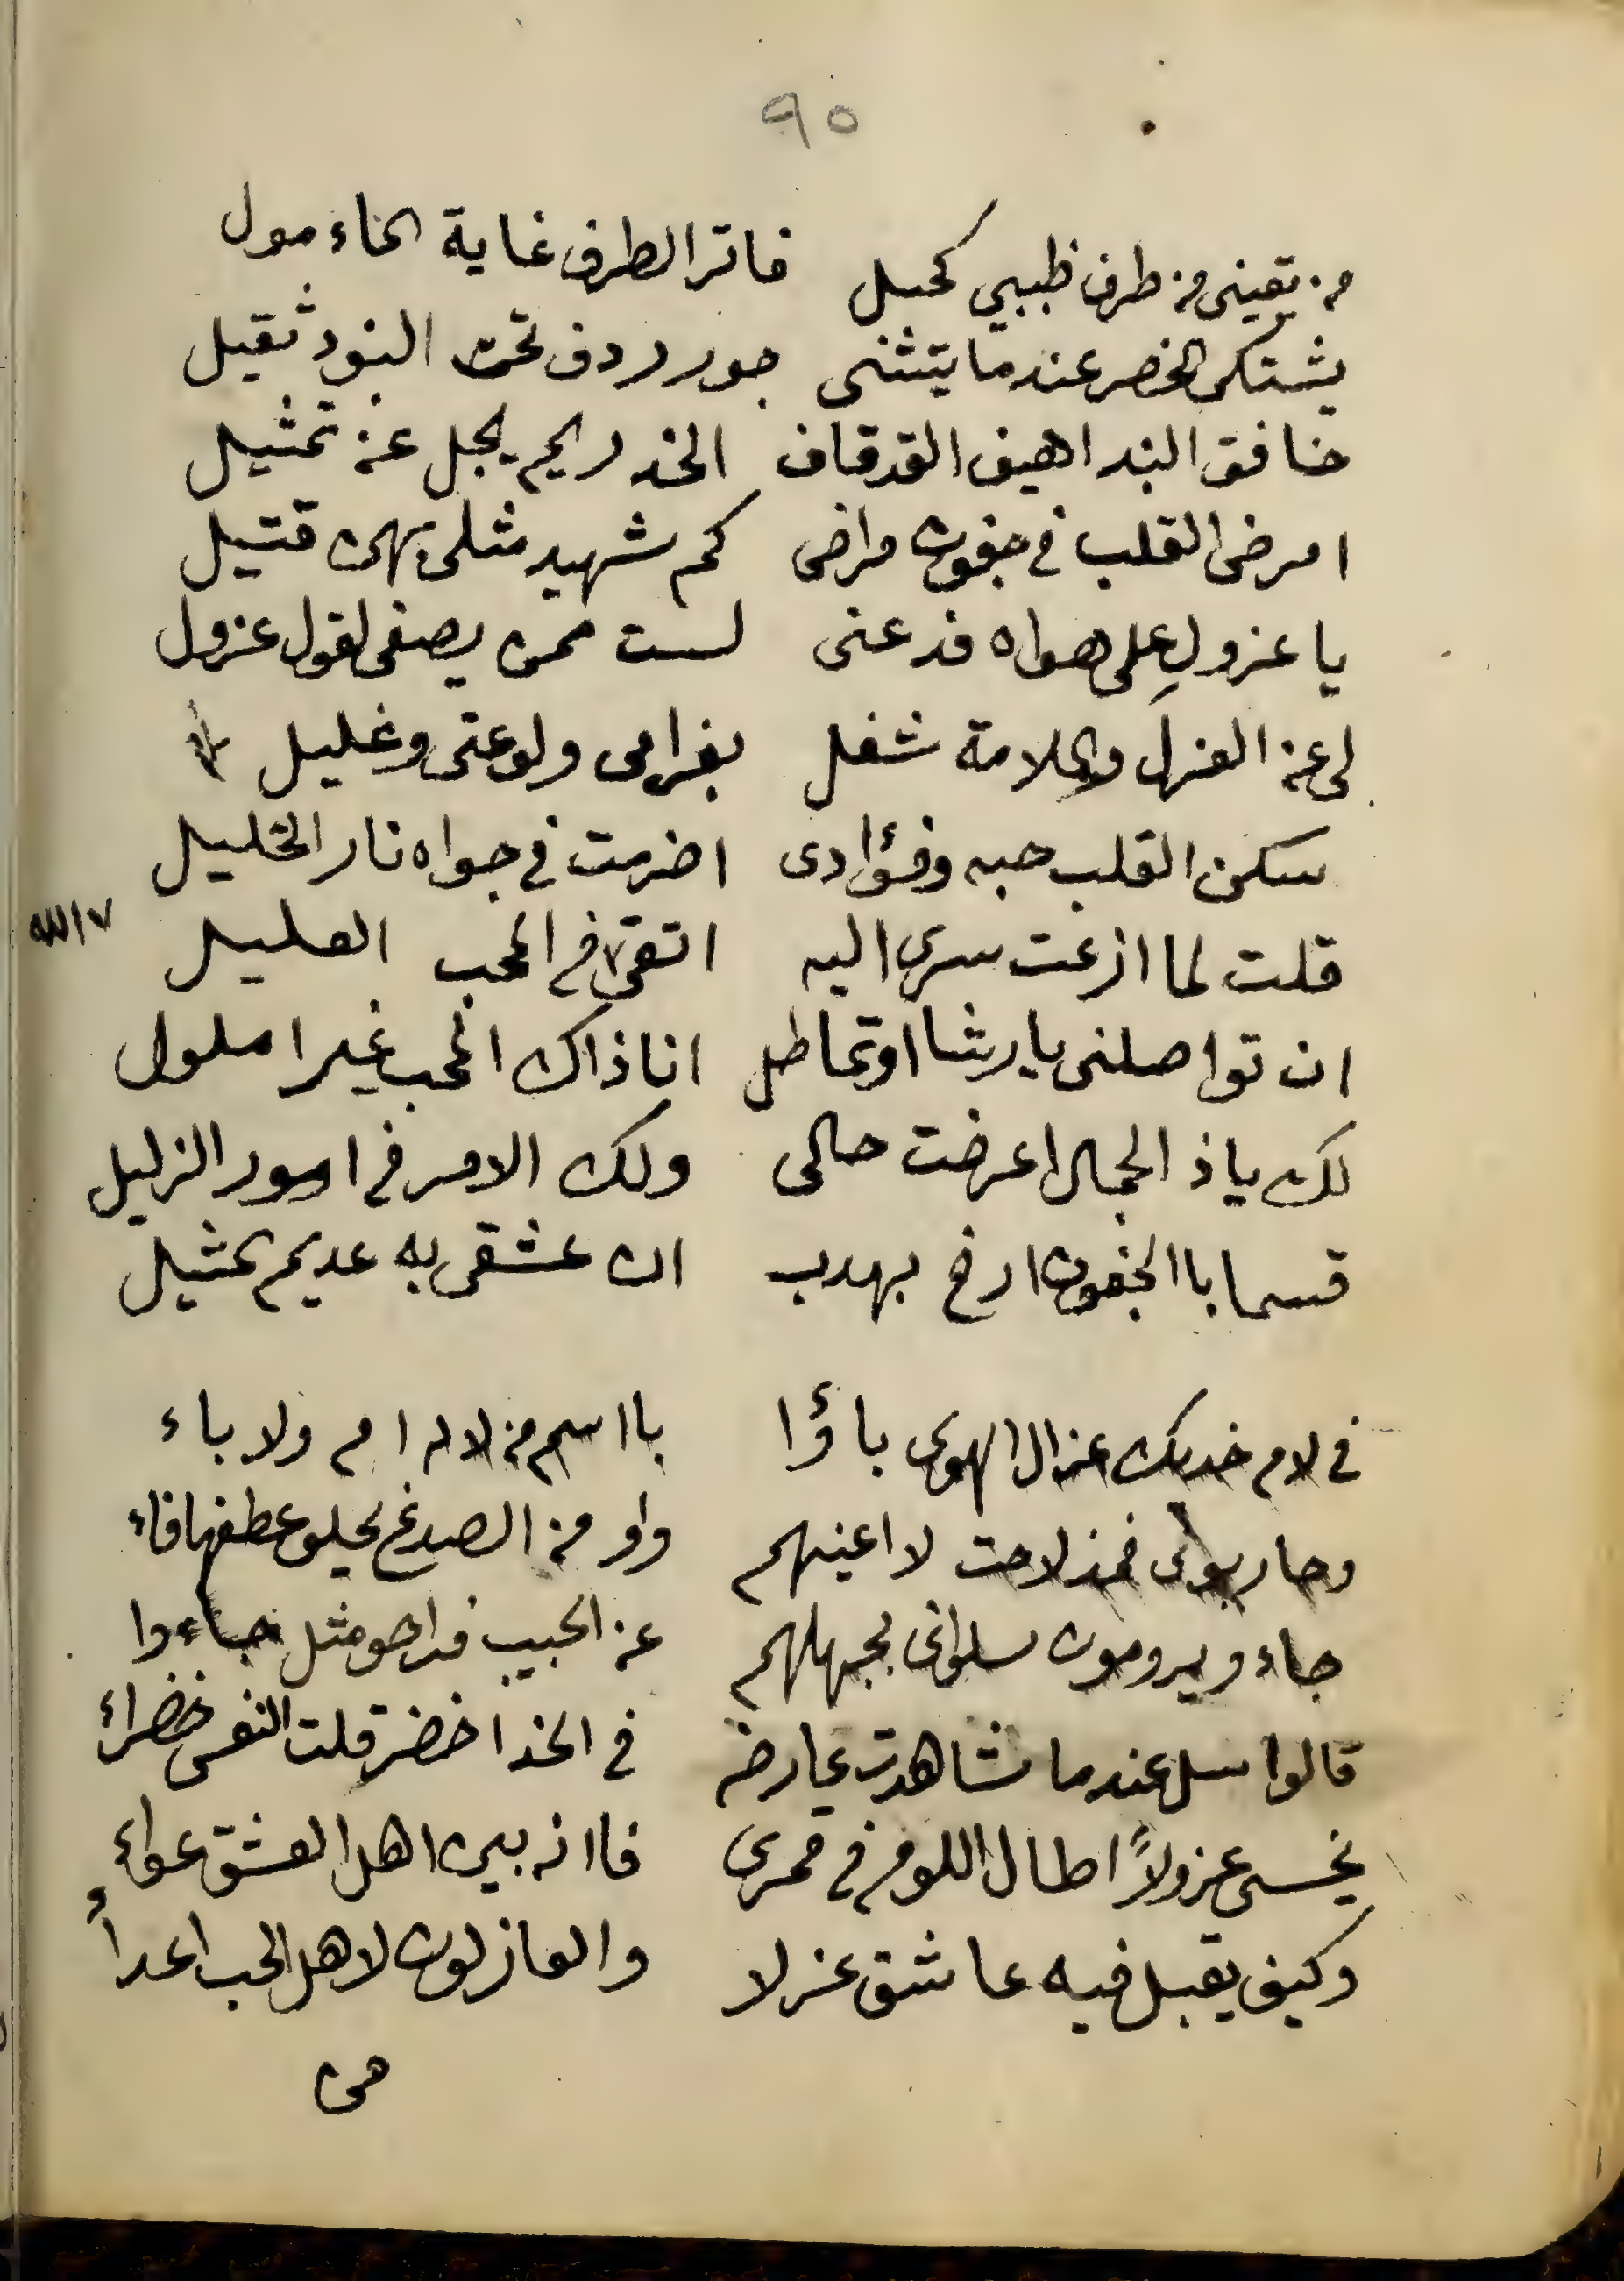 ٩٥
من يقينى من طرف ظبيي كحيل فاتر الطرف غاية المأمول
يشتكى الخصر عندما يتثنى جور ردف تحت البنود ثقيل
خافق البند اهيف القد قاف الخد ريم يجل عن تمثيل
امرض القلب فى جفون مراض كم شهيد مثلى بهن قتيل
يا عزول على هواه فدعنى لست ممن يصغى لقول عزول
لى عن العزل والملامة شغل بغرامى ولوعتى وغليل
سكن القلب حبه وفؤادى اضرمت فى جواه نار الخليل
قلت لما ازعت سرى اليه اتقى ٧ فى المحب العليل ٧ الله
ان تواصلنى يا رشا او تماطل انا ذاك المحب غير املول
لك ياذ الجمال اعرضت حالى ولك الامر فى امور الزليل
قسما با الجفون ارخ بهدب ان عشقى به عديم تمثيل
فى لام خديك عزال الهوى باؤا با اسم من لاله ام ولا باء
وحاربونى فمذ لاحت لاعينهم واو من الصدغ يحلو عطفها فاء
جاء ويرومون سلوانى بجهلهم عن الحبيب فراحو مثل جاءوا
قالوا سل عندما شاهدت عارضه فى الخد اخضر قلت النفس خضراء
يخسى عزولاً اطال اللوم فى قمرى فاانه بين اهل العشق عواء
وكيف يقبل فيه عاشق عزلا والعازلون لاهل الحب اعداؤ
من